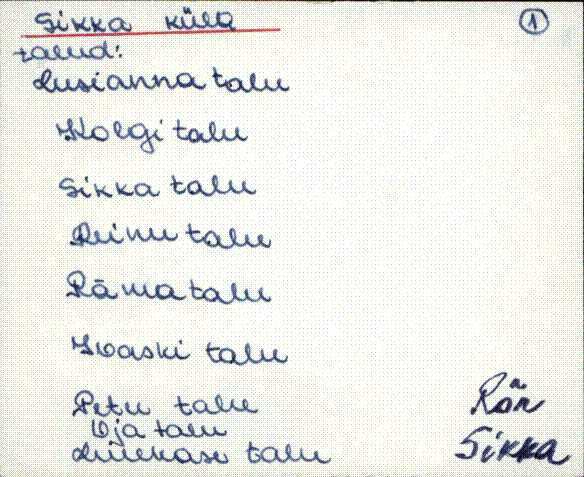 Sikka küla
1
talud:
Lusianna talu
Kolgi talu
Sikka talu
Reinu talu
Räma talu
Ivaski talu
Petu talu
Oja talu
talu
Rõn
Sikka